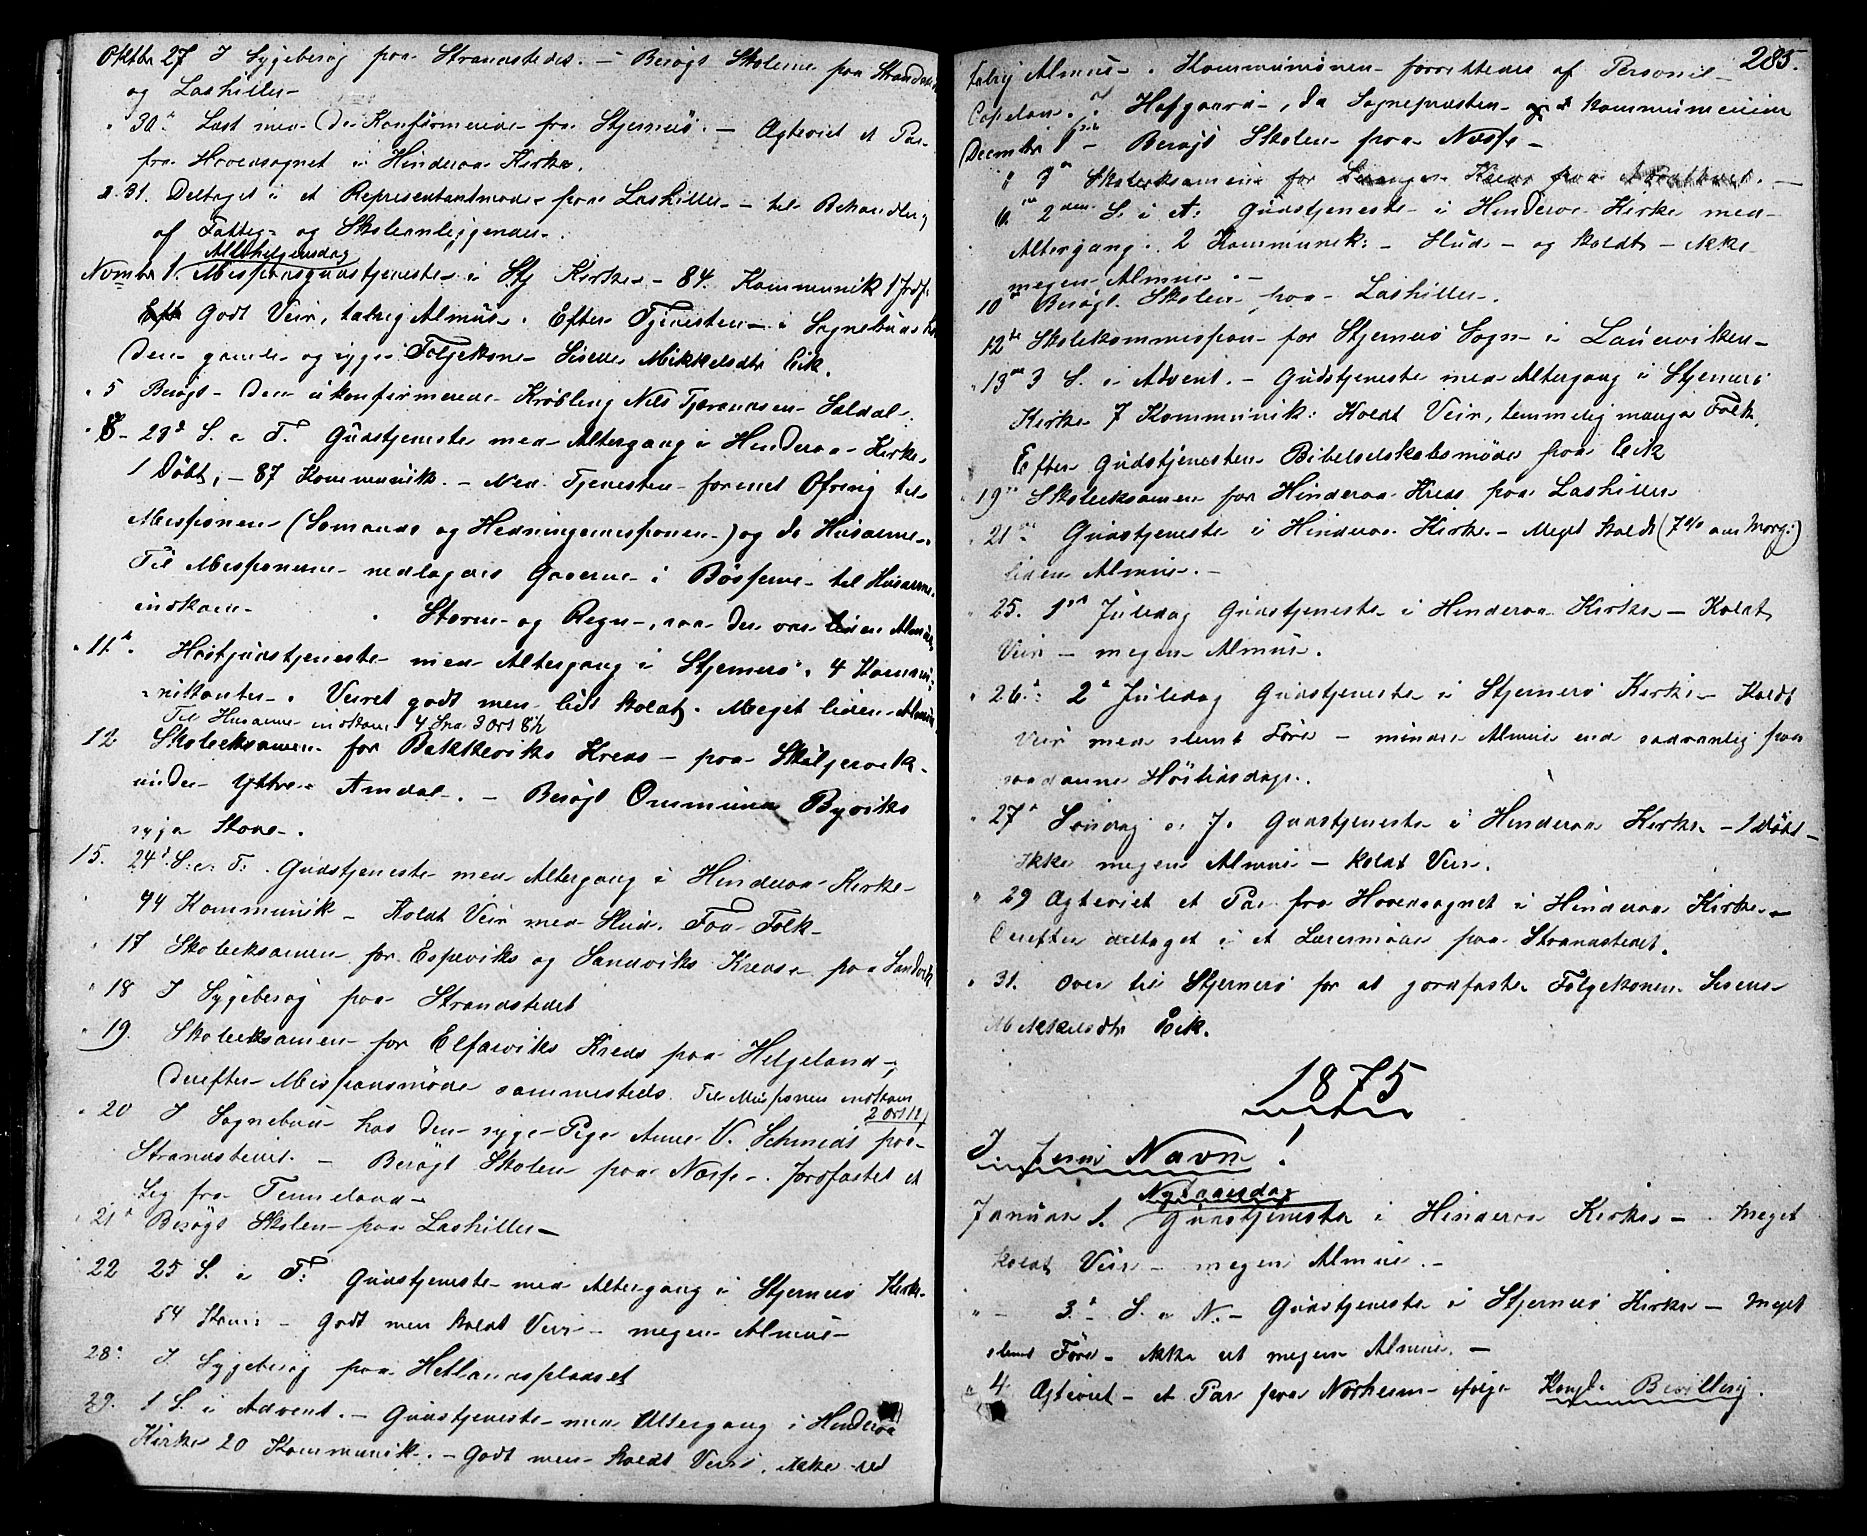 Oktbr 27 I Sygebesøg paa Strandstedet. – Besøgt Skolerne paa Strandstedet
og Lashiller –
" 30te Læst med de Konfirmerede fra Stjernerö. – Ægteviet et Par
fra Hovedsognet i Hinderaa Kirke.
" 31. Deltaget i et Repræsentantmøde paa Lashiller – til Behandling
af Fattig- og Skoleanliggender.
Allehelgensdag
Novmbr 1. Missionsgudstjeneste i Stj Kirke – 84 Kommunik 1 Jrdf.
Godt Veir, talrig Almue. Efter Tjenesten – i Sognebud hos
den gamle og syge Følgekone Lisene Mikkelsdtr Eik.
" 5 Besøgt den ukonfirmerede Krøbling Nils Tjerandsen Sældal.
" 8 – 23de S. e T. Gudstjeneste med Altergang i Hinderaa Kirke
1 Døbt, – 87 Kommunik. – Med Tjenesten forenet Ofring til
Missionen (Sømands og Hedningemissionen) og de Husarme.
Til Missionerne nedlagdes Gaverne i Bøsserne til Husarme
indkom –
Storm og Regn, saa der var liden Almue
" 11te Høstgudstjeneste med Altergang i Stjernerö. 4 Kommu-
nikanter. Veiret godt men lidt koldt. Meget liden Almue
Til Husarme indkom 4 Spd 3 Ort 8 ß
12 Skoleeksamen for Bakkeviks Kreds – paa Skiljevik
under Yttre Amdal. – Besøgt Ommund Byviks
syge Kone.
15. 24de S. e. T. Gudstjeneste med Altergang i Hinderaa Kirke
94 Kommunik – Koldt Veir med Slud. Faa Folk –
" 17 Skoleeksamen for Espeviks og Sandviks Kredse paa Sandvik
" 18 I Sygebesøg paa Strandstedet
" 19. Skoleeksamen for Elfarviks Kreds paa Helgeland –
Derefter Missionsmøde sammesteds. Til Missionen indkom
2 Ort 12 ß
" 20 I Sognebud hos den syge Pige Anne V. Schmidt paa
Strandstedet. – Besøgt Skolen paa Næsse. Jordfæstet et
Lig fra Tenneland –
21de Besøgt Skolen paa Lashiller –
22 25 S. e T: Gudstjeneste med Altergang i Stjernerö Kirke
54 Komm: – Godt men koldt Veir – megen Almue –
28de I Sygebesøg paa Hetlandspladset
29. 1 S. i Advent. – Gudstjeneste med Altergang i Hinderaa
Kirke 20 Kommunik. – Godt men koldt Veir. Ikke ret
285.
talrig Almue. Kommunionen forrettedes af Personel
Capelan J. Hofgaard –, da Sognepræsten kommunicerede
Decmbr 1ste – Besøgt Skolen paa Næsse –
" 3de Skoleeksamen for Kreds paa
6te 2den S. i A: Gudstjeneste i Hinderaa Kirke med
Altergang. 2 Kommunik: – Slud og koldt – ikke
megen Almue. –
10de Besøgt Skolen paa Lashiller.
12te Skolekommission for Stjernerö Sogn i Lauervíken –
" 13de 3 S. i Advent. – Gudstjeneste med Altergang i Stjernerö
Kirke 7 Kommunik: Koldt Veir, temmelig mange Folk.
Efter Gudstjenesten Bibelselskabsmøde paa Eik
19de Skoleeksamen for Hinderaa Kreds paa Lashiller
" 21de Gudstjeneste i Hinderaa Kirke – Meget koldt (7 ° om Morg:)
liden Almue. –
" 25. 1ste Juledag Gudstjeneste i Hinderaa Kirke – Koldt
Veir – megen Almue.
" 26de 2de Juledag Gudstjeneste i Stjernerö Kirke – Koldt
Veir med slemt Føre – mindre Almue end sædvanlig paa
saadanne Høitidsdage.
" 27de Søndag e. J. Gudstjeneste i Hinderaa Kirke – 1 Døbt –
Ikke megen Almue – koldt Veir.
" 29 Ægteviet et Par fra Hovedsognet i Hinderaa Kirke –
Derefter deltaget i et Læremøde paa Strandstedet.
" 31. Over til Stjernerö for at jordfæste Følgekonen Lisene
Mikkelsdtr Eik.
1875
I Jesu Navn!
Nytaarsdag
Januar 1. Gudstjeneste i Hinderaa Kirke – Meget
koldt Veir – megen Almue. –
" – 3de S. e N. – Gudstjeneste i Stjernerö Kirke – Meget
slemt Føre – ikke ret megen Almue. –
" 4 Ægteviet et Par paa Norheim ifølge Kongl. Bevilling.